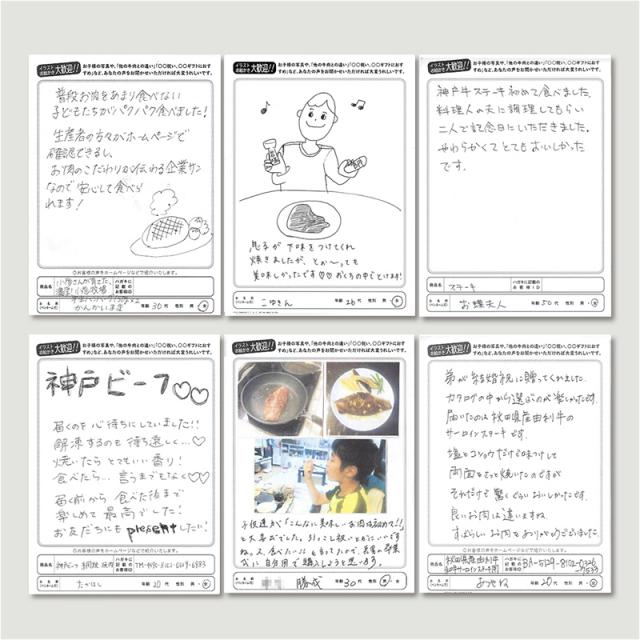 イラスト お絵かき 大歓迎!!
お子様の写真や、「他の牛肉との違い」「〇〇祝い、〇〇ギフトにおすすめ」など、あなたの声をお聞かせいただければ大変うれしいです。
普段お肉をあまり食べない
子どもたちがパクパク食べました!
生産者の方々がホームページで
確認できるし、
お肉のこだわりが伝わる企業サン
なので安心して食べら
れます!
◎お客様の声をホームページなどで紹介いたします。
商品名
ハガキに記載のお客様ID
年齢 30代 性別 男・女
イラスト お絵かき 大歓迎!!
お子様の写真や、「他の牛肉との違い」「〇〇祝い、〇〇ギフトにおすすめ」など、あなたの声をお聞かせいただければ大変うれしいです。
息子が下味をつけてくれ
焼きましたが、とか〜っても
美味しかったです♡♡
こゆきん
年齢 20代 性別 男・女
イラスト お絵かき 大歓迎!!
お子様の写真や、「他の牛肉との違い」「〇〇祝い、〇〇ギフトにおすすめ」など、あなたの声をお聞かせいただければ大変うれしいです。
神戸牛ステーキ初めて食べました。
料理人の夫に調理してもらい
二人で記念日にいただきました。
やわらかくてとてもおいしかった
です。
◎お客様の声をホームページなどで紹介いたします。
商品名 ステーキ
ハガキに記載のお客様ID
お蝶夫人
年齢 50代 性別 男・女
イラスト お絵かき 大歓迎!!
お子様の写真や、「他の牛肉との違い」「〇〇祝い、〇〇ギフトにおすすめ」など、あなたの声をお聞かせいただければ大変うれしいです。
神戸ビーフ♡♡
届くのを心待ちにしていました!!
解凍するのも待ち遠しく…♡
焼いたらとてもいい香り!
食べたら…言うまでもなく♡♡
届く前から食べた後まで
楽しめて最高でした!
お友だちにもpresentしたい!
◎お客様の声をホームページなどで紹介いたします。
商品名
ハガキに記載のお客様ID
たかはし
年齢 20代 性別 男・女
イラスト お絵かき 大歓迎!!
お子様の写真や、「他の牛肉との違い」「〇〇祝い、〇〇ギフトにおすすめ」など、あなたの声をお聞かせいただければ大変うれしいです。
子供達が「こんなに美味しいお肉は初めて!!」
と大喜びでした。
年齢 30代 性別 男・女
イラスト お絵かき 大歓迎!!
お子様の写真や、「他の牛肉との違い」「〇〇祝い、〇〇ギフトにおすすめ」など、あなたの声をお聞かせいただければ大変うれしいです。
弟が結婚祝に贈ってくれました。
カタログの中から選ぶのが楽しかったです。
届いたのは秋田県産由利牛の
サーロインステーキです。
塩とコショウだけで味つけして
両面をさっと焼いたのですが
それだけで驚くくらいおいしかったです。
良いお肉は違いますね。
すばらしいお肉をありがとうございました。
◎お客様の声をホームページなどで紹介いたします。
商品名
ハガキに記載のお客様ID
年齢 20代 性別 男・女